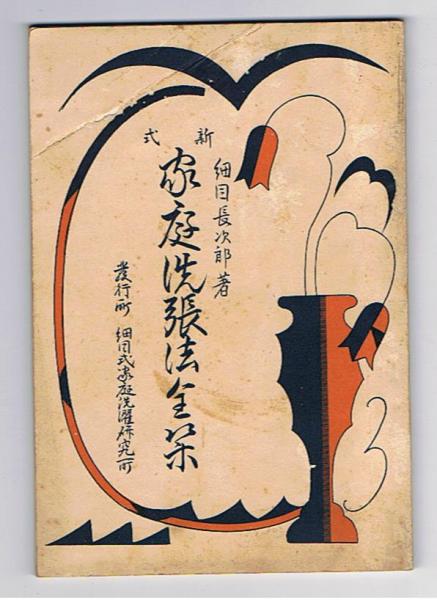 新式
細目長次郎著
家庭洗張法全集
發行所 細目式家庭洗濯研究所